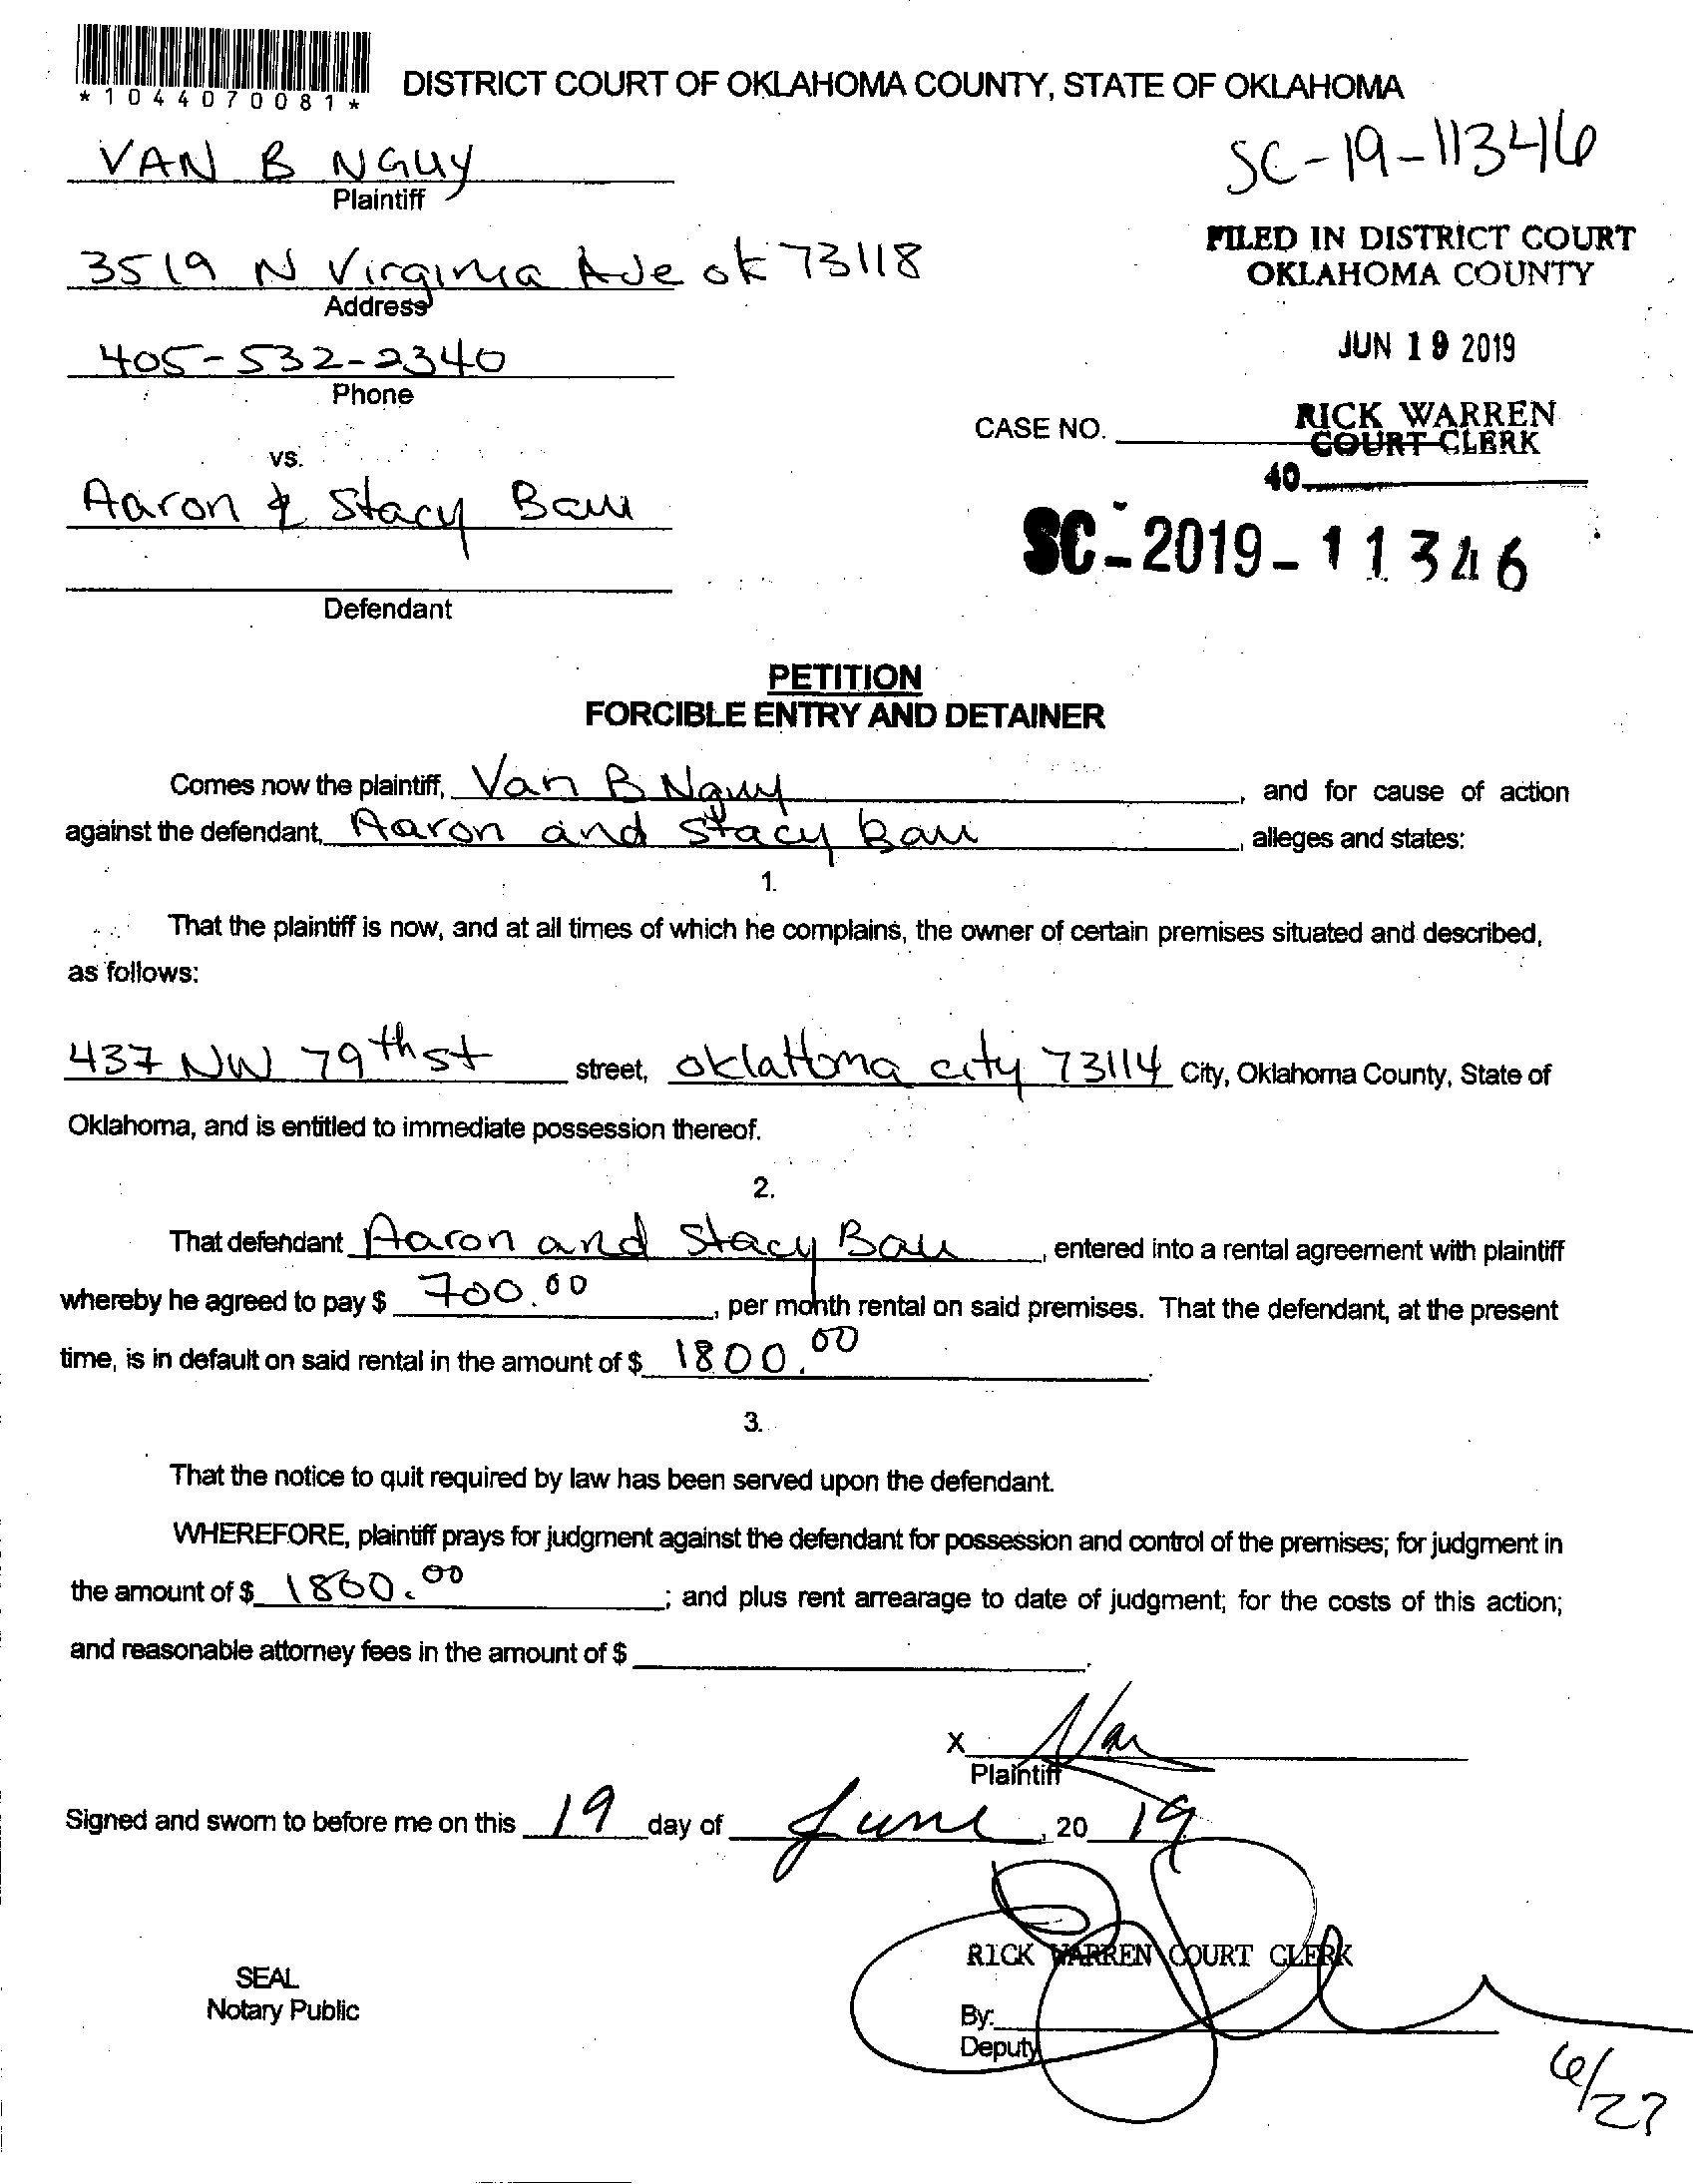 *1044070081*
DISTRICT COURT OF OKLAHOMA COUNTY, STATE OF OKLAHOMA
VAN B NGUY
Plaintiff
SC-19-11346
3519 N Virginia Ave ok 73118
Address
FILED IN DISTRICT COURT
OKLAHOMA COUNTY
405-532-2340
Phone
JUN 19 2019
CASE NO.
RICK WARREN
COURT CLERK
40
vs.
Aaron & Stacy
SC-2019-11346
Defendant
PETITION
FORCIBLE ENTRY AND DETAINER
Comes now the plaintiff, Van B Nguy, and for cause of action
against the defendant, Aaron and Stacy, alleges and states:
1.
That the plaintiff is now, and at all times of which he complains, the owner of certain premises situated and described,
as follows:
437 NW 79th st street, oklaHoma city 73114 City, Oklahoma County, State of
Oklahoma, and is entitled to immediate possession thereof.
2.
That defendant Aaron and Stacy, entered into a rental agreement with plaintiff
whereby he agreed to pay $ 700.00, per month rental on said premises. That the defendant, at the present
time, is in default on said rental in the amount of $ 1800.00.
3.
That the notice to quit required by law has been served upon the defendant.
WHEREFORE, plaintiff prays for judgment against the defendant for possession and control of the premises; for judgment in
the amount of $ 1800.00; and plus rent arrearage to date of judgment; for the costs of this action;
and reasonable attorney fees in the amount of $
X Van
Plaintiff
Signed and sworn to before me on this 19 day of June, 20 19
RICK WARREN COURT CLERK
SEAL
Notary Public
By:
Deputy
6/27